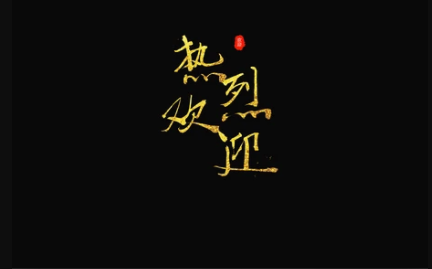 热烈
欢迎